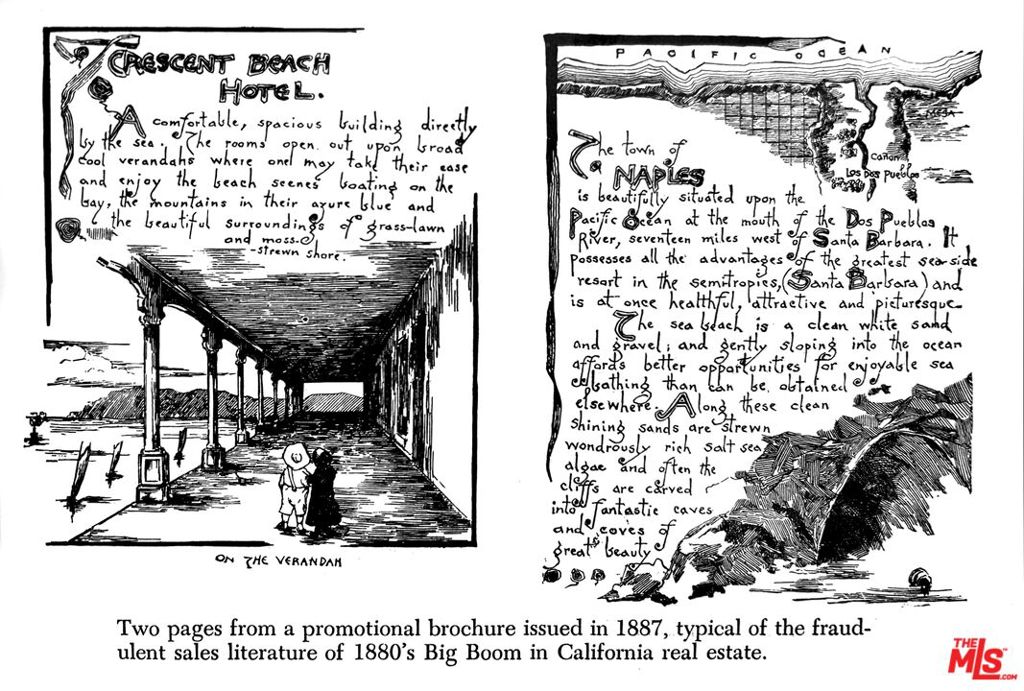 CRESCENT BEACH
HOTEL.
A comfortable, spacious building directly
by the sea. The rooms open out upon broad
cool verandahs where one may take their ease
and enjoy the beach scenes boating on the
bay, the mountains in their azure blue and
the beautiful surroundings of grass-lawn
and moss-
-strewn shore.
ON THE VERANDAH
PACIFIC OCEAN
MESA
Cañon
Los Dos Pueblos
The town of
NAPLES
is beautifully situated upon the
Pacific Ocean at the mouth of the Dos Pueblos
River, seventeen miles west of Santa Barbara. It
possesses all the advantages of the greatest sea-side
resort in the semi-tropics, (Santa Barbara) and
is at once healthful, attractive and picturesque
The sea beach is a clean white sand
and gravel; and gently sloping into the ocean
affords better opportunities for enjoyable sea
bathing than can be obtained
elsewhere. Along these clean
shining sands are strewn
wondrously rich salt sea
algae and often the
cliffs are carved
into fantastic caves
and coves of
great beauty
Two pages from a promotional brochure issued in 1887, typical of the fraud-
ulent sales literature of 1880's Big Boom in California real estate.
THE
MLS™
.COM